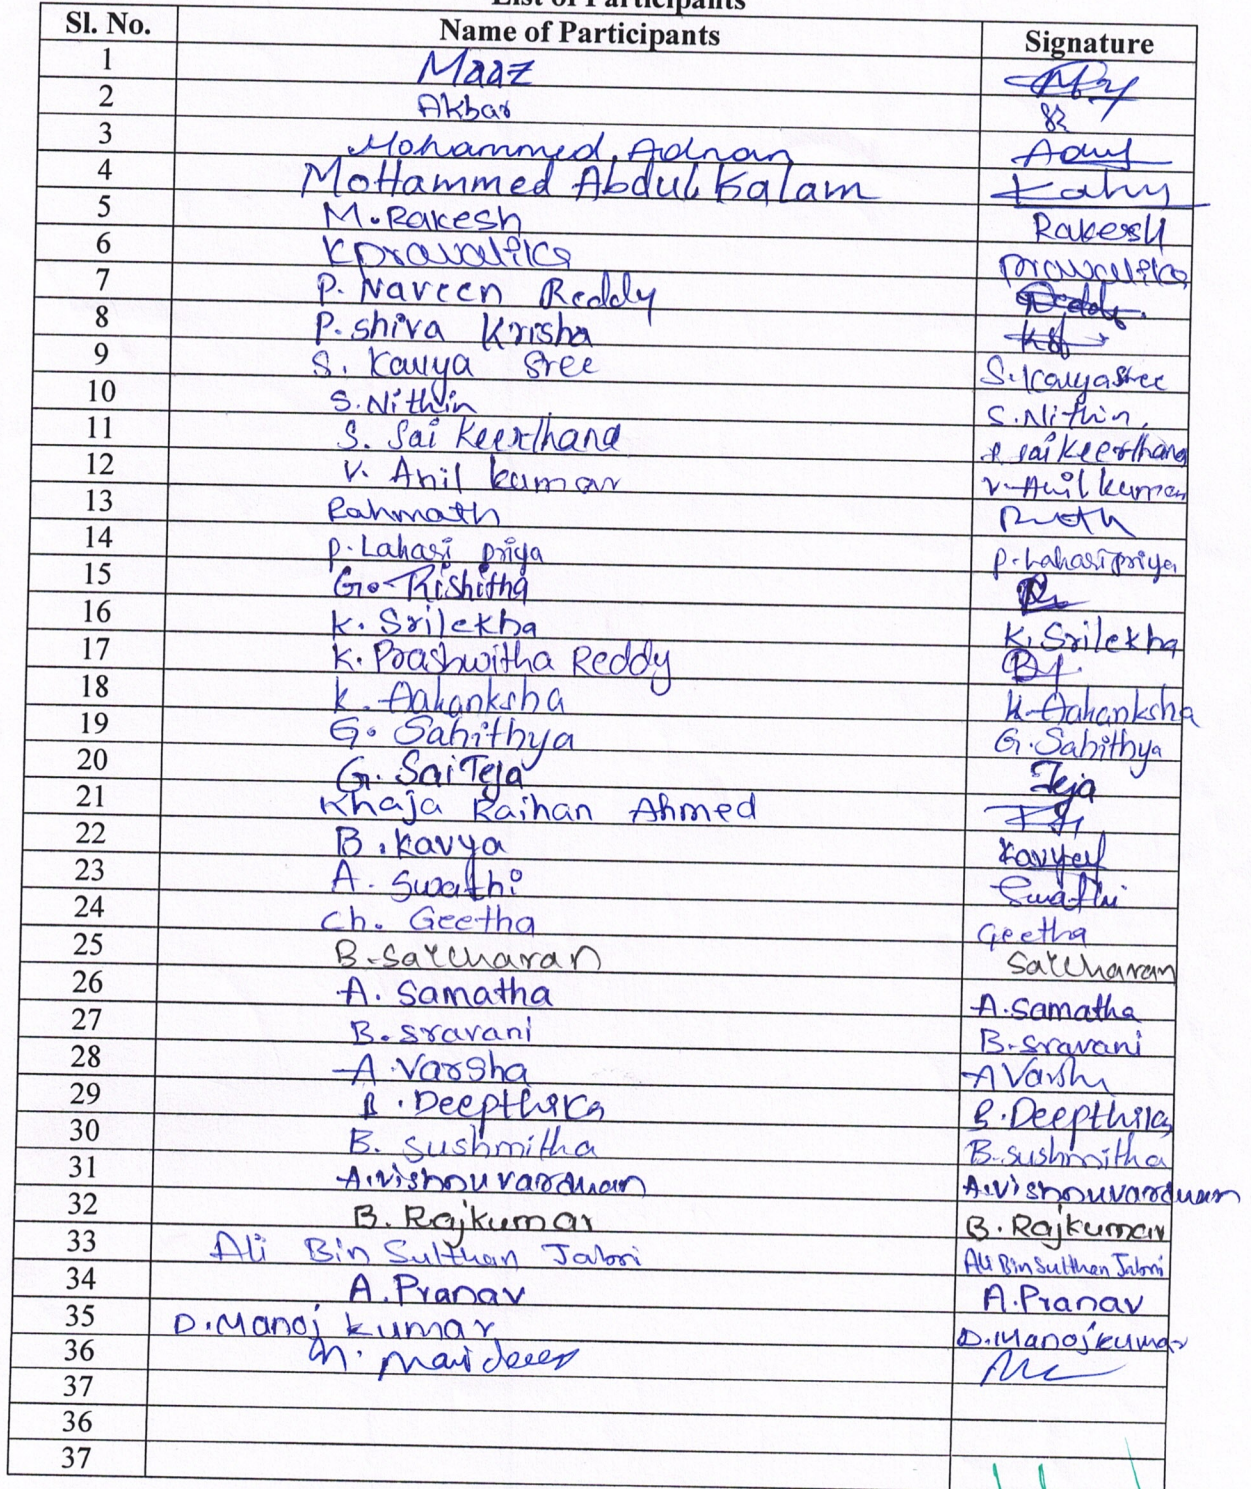 List of Participants
Sl. No. Name of Participants Signature
1 Maaz
2 Akbar
3 Mohammed Adnan
4 MoHammed Abdul Kalam
5 M. Rakesh Rakesh
6 K pravalika pravalika
7 P. Naveen Reddy Reddy
8 P. shiva Krisha
9 S. Kavya Sree S. Kavya Sree
10 S. Nithin S. Nithin
11 S. Sai Keerthana S Sai Keerthana
12 V. Anil kumar V. Anil kumar
13 Rahmath
14 P. Lahari priya P. Lahari priya
15 G. Rishitha
16 K. Srilekha K. Srilekha
17 K. Prashwitha Reddy
18 K. Aakanksha K. Aakanksha
19 G. Sahithya G. Sahithya
20 G. Sai Teja Teja
21 Khaja Raihan Ahmed
22 B. Kavya
23 A. Swathi Swathi
24 Ch. Geetha Geetha
25 B. Saicharan Saicharan
26 A. Samatha A. Samatha
27 B. Sravani B. Sravani
28 A. Varsha A Varsha
29 B. Deepthika B. Deepthika
30 B. sushmitha B. sushmitha
31 A. Vishnuvardhan A. Vishnuvardhan
32 B. Rajkumar B. Rajkumar
33 Ali Bin Sulthan Jabri Ali Bin Sulthan Jabri
34 A. Pranav A. Pranav
35 D. Manoj kumar D. Manoj kumar
36
37
36
37